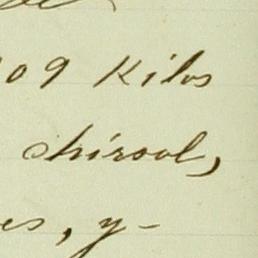 09 Kilos
chirool,
es, y-